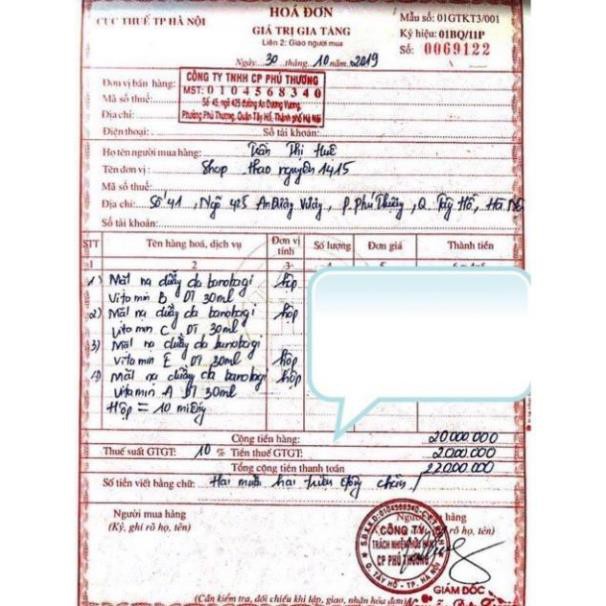 CỤC THUẾ TP HÀ NỘI
HOÁ ĐƠN
GIÁ TRỊ GIA TĂNG
Liên 2: Giao người mua
Mẫu số: 01GTKT3/001
Ký hiệu: 01BQ/11P
Số: 0069122
Ngày 30 tháng 10 năm 2019
Đơn vị bán hàng:
CÔNG TY TNHH CP PHÚ THƯƠNG
Mã số thuế:
MST: 0104568340
Địa chỉ:
Số 45, ngõ 425 đường An Dương Vương,
Phường Phú Thượng, Quận Tây Hồ, Thành phố Hà Nội
Điện thoại: Số tài khoản:
Họ tên người mua hàng: Trần Thị Huê
Tên đơn vị: Shop thảo nguyên 1415
Mã số thuế:
Địa chỉ: Số 41, Ngõ 425 An Dương Vương, P. Phú Thượng, Q. Tây Hồ, Hà Nội
Số tài khoản:
STT Tên hàng hoá, dịch vụ Đơn vị tính Số lượng Đơn giá Thành tiền
1 2 3
1) Mặt nạ dưỡng da banobagi hộp
Vitamin B DT 30ml
2) Mặt nạ dưỡng da banobagi hộp
Vitamin C DT 30ml
3) Mặt nạ dưỡng da banobagi
Vitamin E DT 30ml hộp
4) Mặt nạ dưỡng da banobagi hộp
Vitamin A DT 30ml
Hộp = 10 miếng
Cộng tiền hàng: 20000.000
Thuế suất GTGT: 10 % Tiền thuế GTGT: 2.000.000
Tổng cộng tiền thanh toán 22.000.000
Số tiền viết bằng chữ: Hai mươi hai triệu đồng chẵn
Người mua hàng
(Ký, ghi rõ họ, tên)
Người bán hàng
rõ họ, tên)
CÔNG TY
TRÁCH NHIỆM HỮU HẠN
CP PHÚ THƯƠNG
Q. TÂY HỒ - TP. HÀ NỘI
GIÁM ĐỐC
(Cần kiểm tra, đối chiếu khi lập, giao, nhận hóa đơn)